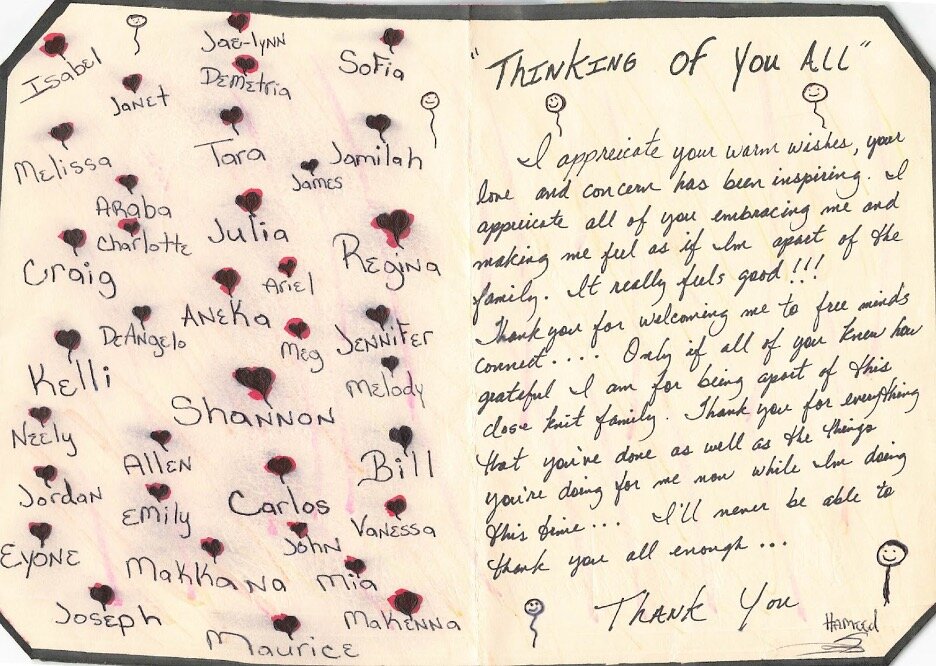 Isabel
Jae-lynn
Sofia
Janet
Demetria
Melissa
Tara
Jamilah
James
Araba
Charlotte
Julia
Regina
Craig
Ariel
Aneka
DeAngelo
Meg
Jennifer
Kelli
Melody
Shannon
Neely
Allen
Bill
Jordan
Emily
Carlos
Vanessa
Eyone
John
Makkana
Mia
Joseph
Makenna
Maurice
"Thinking of You All"
I appreicate your warm wishes, your
love and concern has been inspiring. I
appreicate all of you embracing me and
making me feel as if Im apart of the
family. It really feels good!!!
Thank you for welcoming me to free minds
connect.... Only if all of you knew how
grateful I am for being apart of this
close knit family. Thank you for everything
that you've done as well as the things
you're doing for me now while Im doing
this time... I'll never be able to
thank you all enough...
Thank You
Hameed